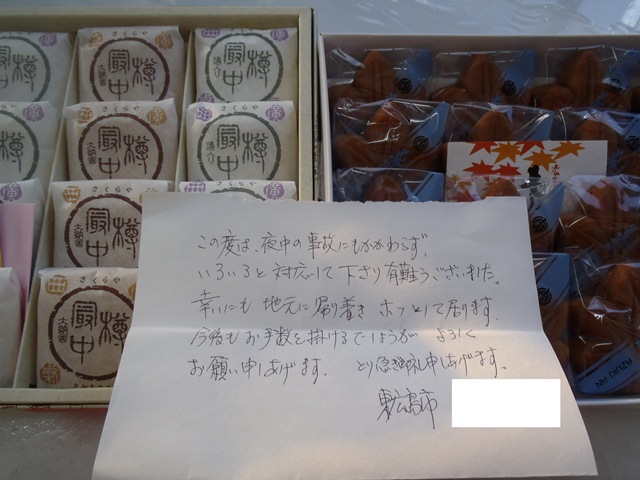 さくらや
樽最中
さくらや
樽最中
大納言
さくらや
樽最中
大納言
さくらや
さくらや
樽最中
大納言
さくらや
樽最中
大納言
AZUKI-AN
この度は、夜中の事故にもかかわらず、
いろいろと対応して下さり有難うございました。
幸いにも地元に帰り着きホッとして居ります。
今後もお手数を掛けるでしょうが よろしく
お願い申しあげます。 とり急ぎ御礼申しあげます。
東広島市